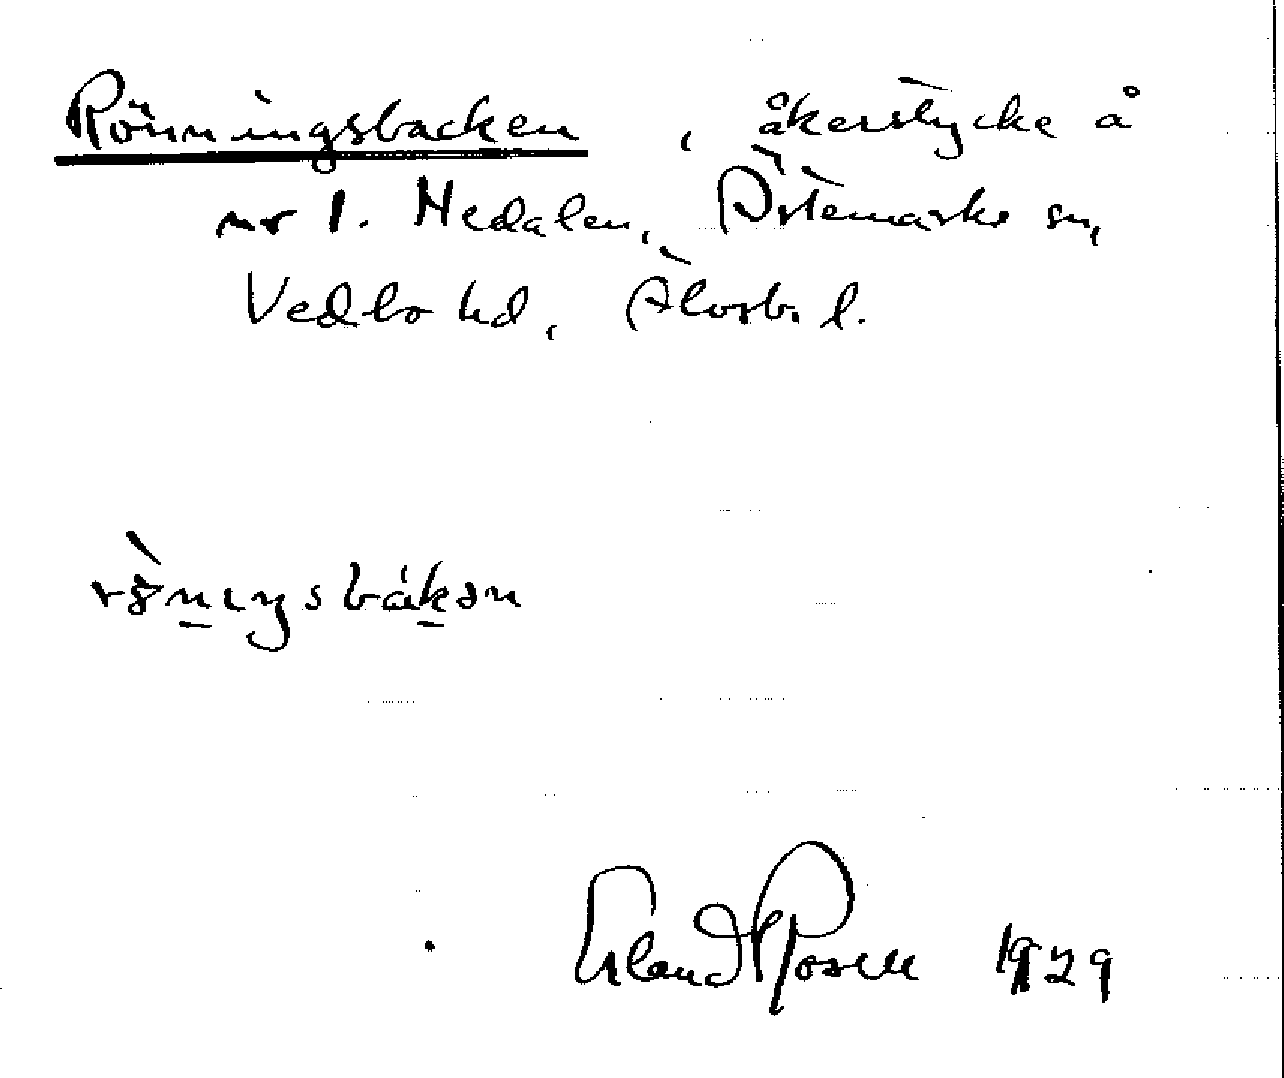 Rönningsbacken, åkerstycke å
nr 1. Nedalen, Östemarks sn,
Vedbo hd, Älvsb. l.
rö̀nıŋsbákən
Erland Rosell 1929